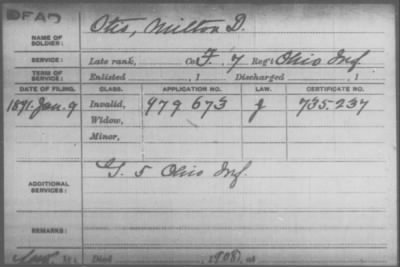 DEAD
NAME OF SOLDIER: Otis, Milton D.
SERVICE: Late rank, Co. F. 7 Reg't Ohio Inf.
TERM OF SERVICE: Enlisted , 1 Discharged , 1
DATE OF FILING. CLASS. APPLICATION NO. LAW. CERTIFICATE NO.
1891. Jan. 9 Invalid, 979 673 J 735-237
Widow,
Minor,
ADDITIONAL SERVICES: G. 5 Ohio Inf.
REMARKS:
Died , 1908, at